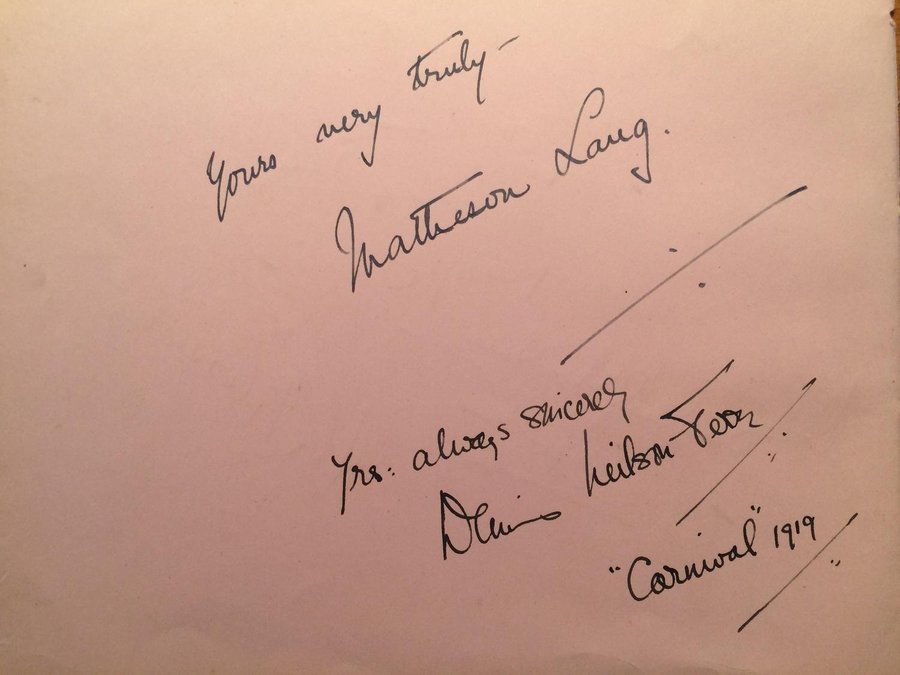 Yours very truly -
Matheson Lang.
Yrs: always sincerely
Dennis Neilson Terry
"Carnival" 1919